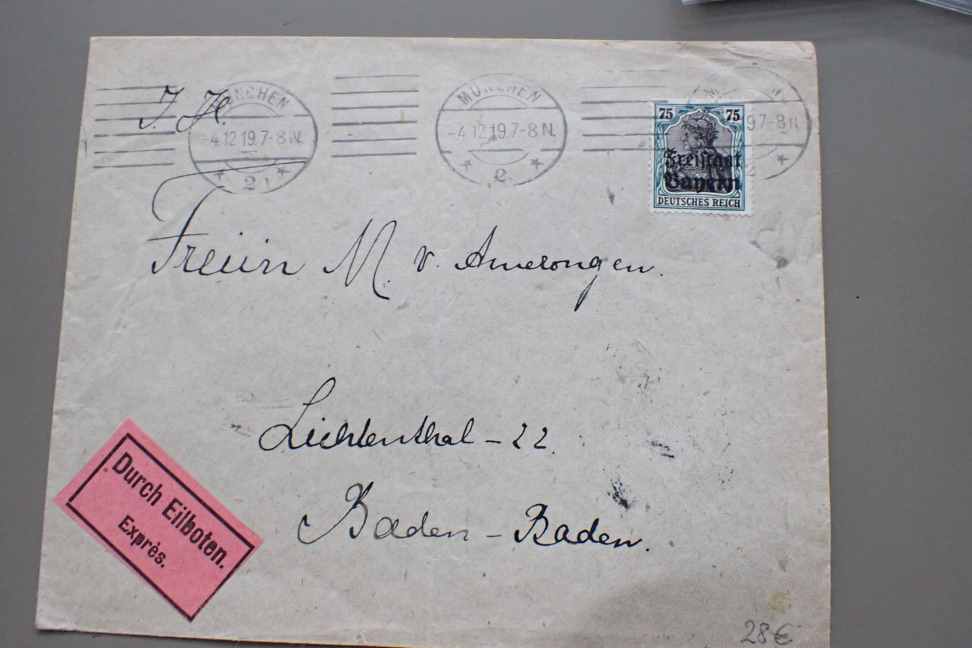 I. H.
MÜNCHEN
-4.12.19.7-8 N.
2
MÜNCHEN
-4.12.19.7-8 N.
2
9.7-8 N.
2
75 75
Freistaat
Bayern
DEUTSCHES REICH
Freiin M. v. Amerongen.
Lichtenthal - 22.
Baden - Baden.
Durch Eilboten.
Exprès.
28€